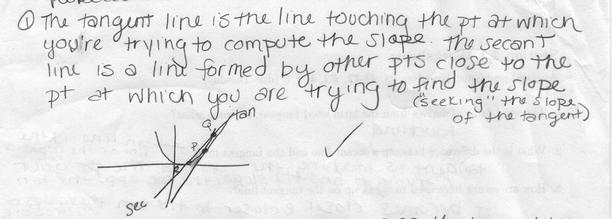 ① The tangent line is the line touching the pt at which
you're trying to compute the slope. The secant
line is a line formed by other pts close to the
pt at which you are trying to find the slope
("seeking" the slope
of the tangent)
tan
Q
P
sec